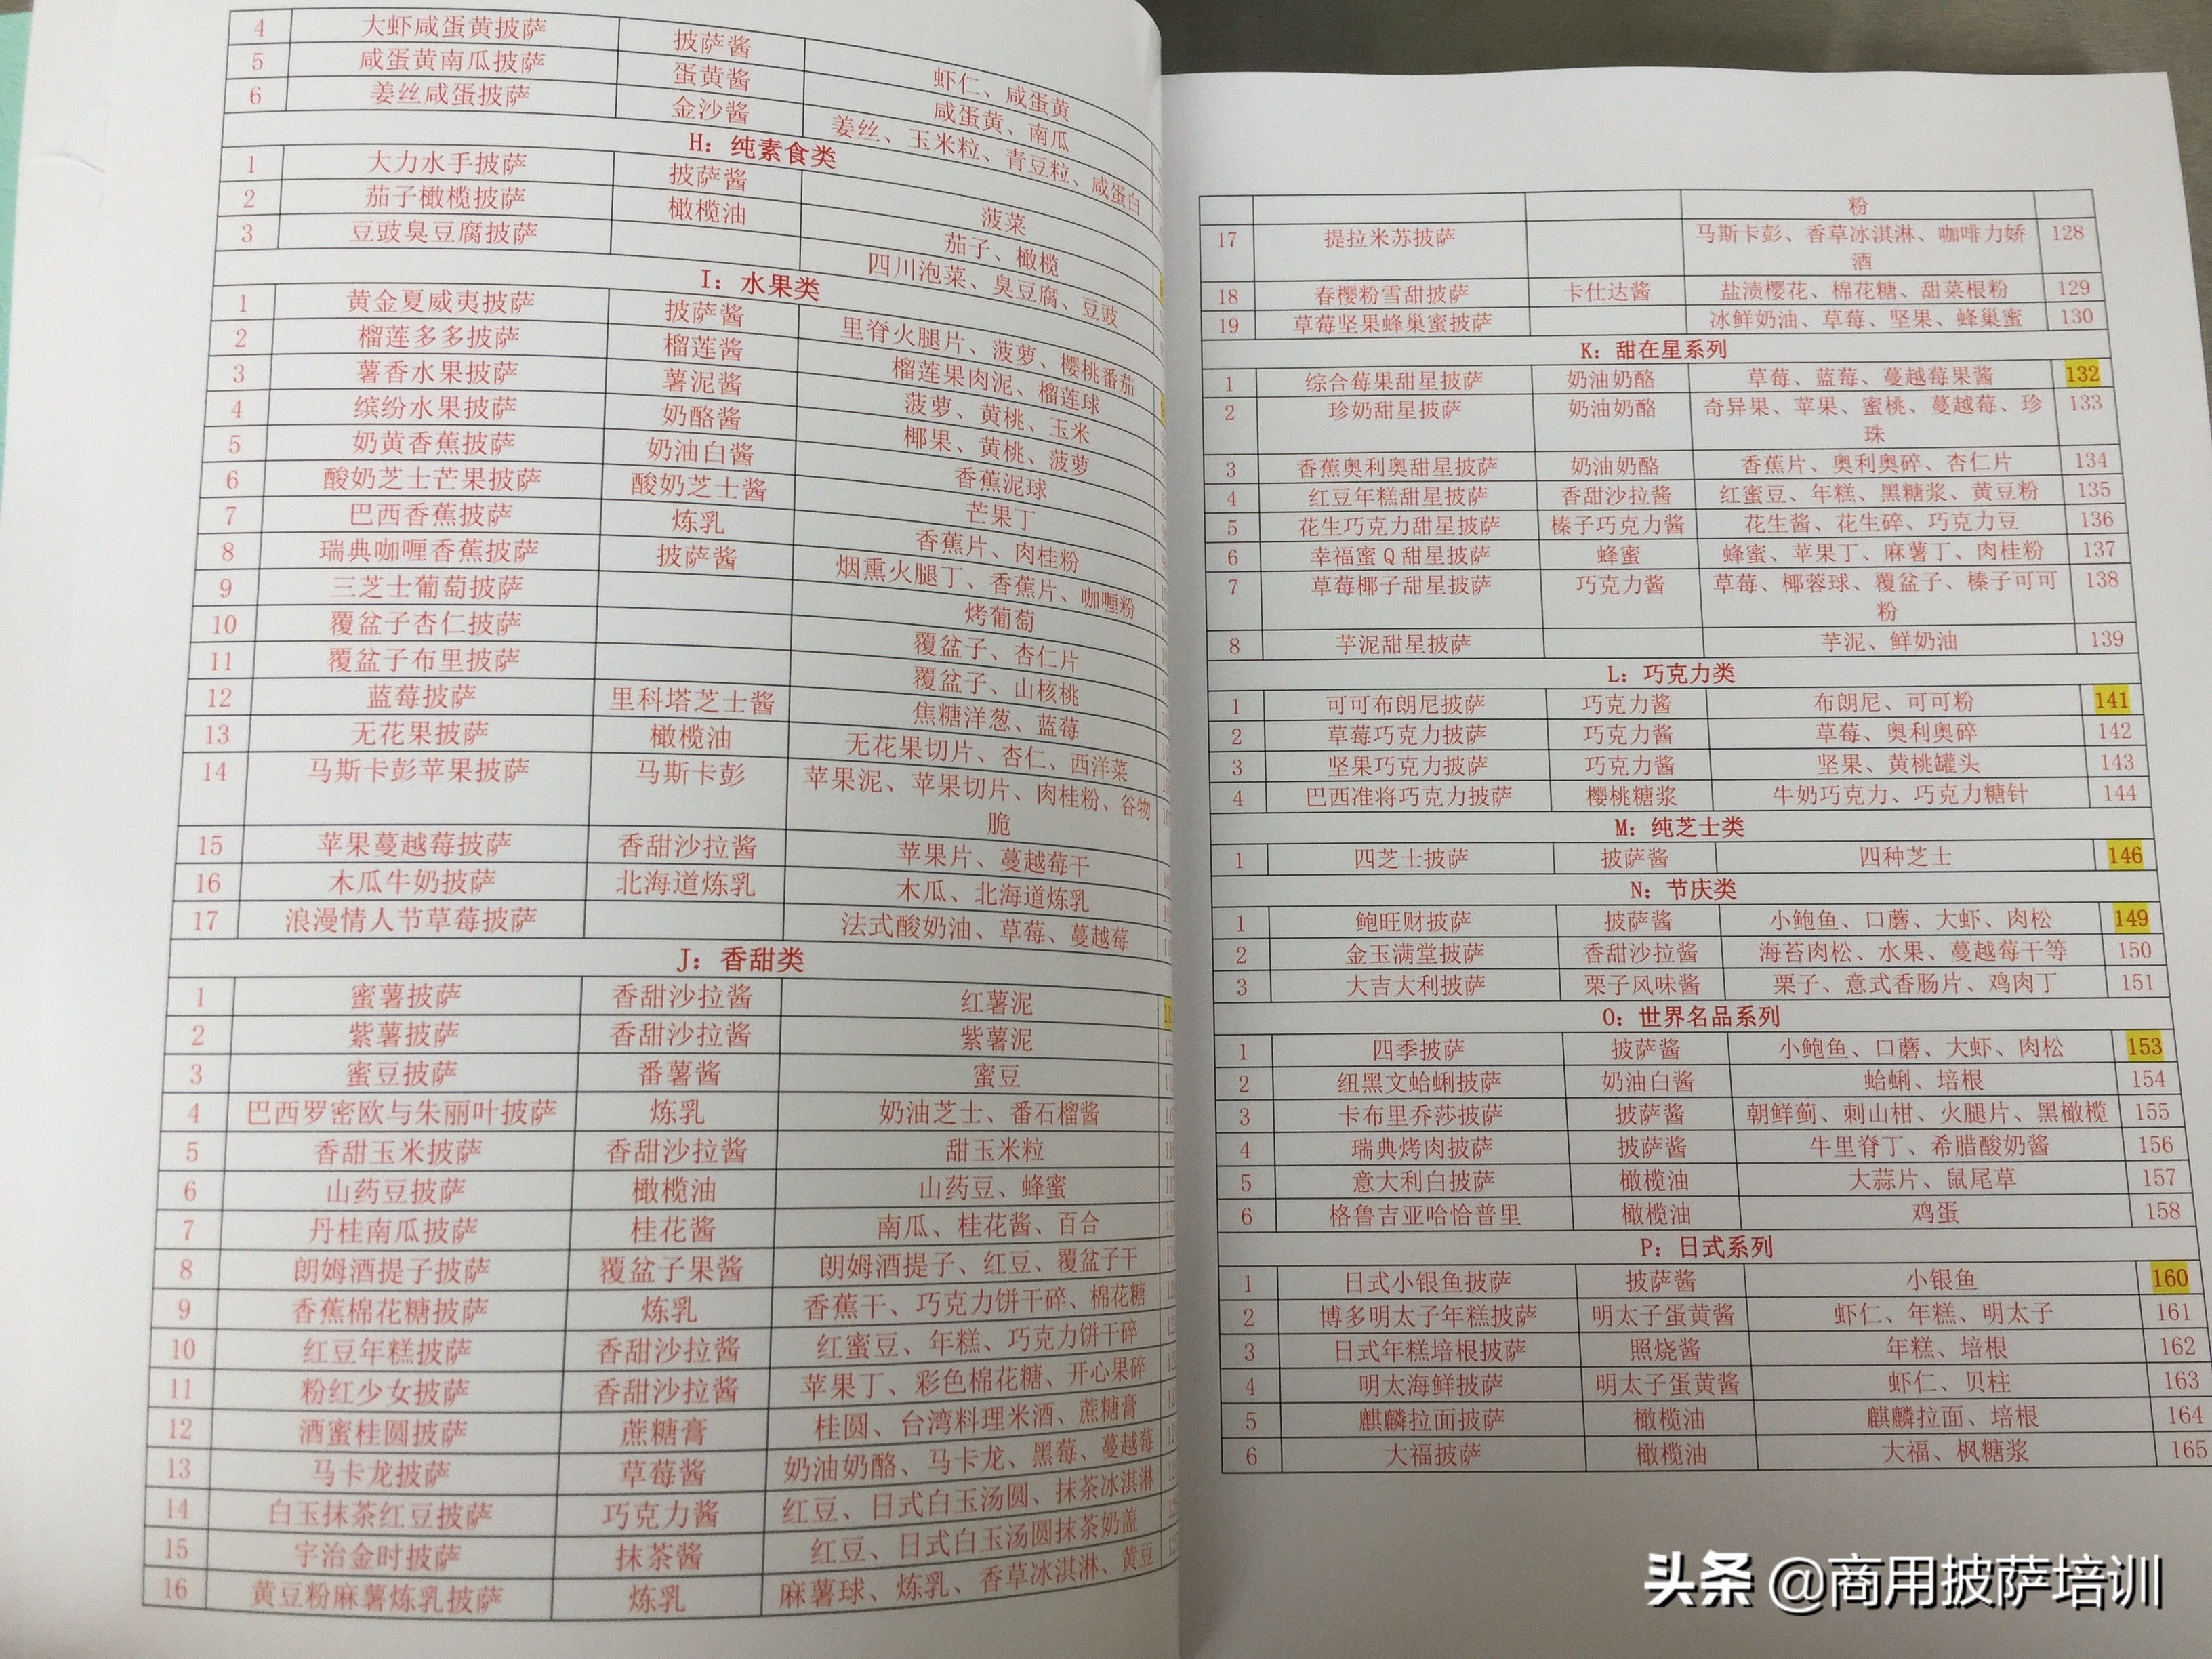 4 大虾咸蛋黄披萨 披萨酱 虾仁、咸蛋黄
5 咸蛋黄南瓜披萨 蛋黄酱 咸蛋黄、南瓜
6 姜丝咸蛋披萨 金沙酱 姜丝、玉米粒、青豆粒、咸蛋白
H：纯素食类
1 大力水手披萨 披萨酱 菠菜
2 茄子橄榄披萨 橄榄油 茄子、橄榄
3 豆豉臭豆腐披萨 四川泡菜、臭豆腐、豆豉
I：水果类
1 黄金夏威夷披萨 披萨酱 里脊火腿片、菠萝、樱桃番茄
2 榴莲多多披萨 榴莲酱 榴莲果肉泥、榴莲球
3 薯香水果披萨 薯泥酱 菠萝、黄桃、玉米
4 缤纷水果披萨 奶酪酱 椰果、黄桃、菠萝
5 奶黄香蕉披萨 奶油白酱 香蕉泥球
6 酸奶芝士芒果披萨 酸奶芝士酱 芒果丁
7 巴西香蕉披萨 炼乳 香蕉片、肉桂粉
8 瑞典咖喱香蕉披萨 披萨酱 烟熏火腿丁、香蕉片、咖喱粉
9 三芝士葡萄披萨 烤葡萄
10 覆盆子杏仁披萨 覆盆子、杏仁片
11 覆盆子布里披萨 覆盆子、山核桃
12 蓝莓披萨 里科塔芝士酱 焦糖洋葱、蓝莓
13 无花果披萨 橄榄油 无花果切片、杏仁、西洋菜
14 马斯卡彭苹果披萨 马斯卡彭 苹果泥、苹果切片、肉桂粉、谷物
脆
15 苹果蔓越莓披萨 香甜沙拉酱 苹果片、蔓越莓干
16 木瓜牛奶披萨 北海道炼乳 木瓜、北海道炼乳
17 浪漫情人节草莓披萨 法式酸奶油、草莓、蔓越莓
J：香甜类
1 蜜薯披萨 香甜沙拉酱 红薯泥
2 紫薯披萨 香甜沙拉酱 紫薯泥
3 蜜豆披萨 番薯酱 蜜豆
4 巴西罗密欧与朱丽叶披萨 炼乳 奶油芝士、番石榴酱
5 香甜玉米披萨 香甜沙拉酱 甜玉米粒
6 山药豆披萨 橄榄油 山药豆、蜂蜜
7 丹桂南瓜披萨 桂花酱 南瓜、桂花酱、百合
8 朗姆酒提子披萨 覆盆子果酱 朗姆酒提子、红豆、覆盆子干
9 香蕉棉花糖披萨 炼乳 香蕉干、巧克力饼干碎、棉花糖
10 红豆年糕披萨 香甜沙拉酱 红蜜豆、年糕、巧克力饼干碎
11 粉红少女披萨 香甜沙拉酱 苹果丁、彩色棉花糖、开心果碎
12 酒蜜桂圆披萨 蔗糖膏 桂圆、台湾料理米酒、蔗糖膏
13 马卡龙披萨 草莓酱 奶油奶酪、马卡龙、黑莓、蔓越莓
14 白玉抹茶红豆披萨 巧克力酱 红豆、日式白玉汤圆、抹茶冰淇淋
15 宇治金时披萨 抹茶酱 红豆、日式白玉汤圆抹茶奶盖
16 黄豆粉麻薯炼乳披萨 炼乳 麻薯球、炼乳、香草冰淇淋、黄豆
粉
17 提拉米苏披萨 马斯卡彭、香草冰淇淋、咖啡力娇 128
酒
18 春樱粉雪甜披萨 卡仕达酱 盐渍樱花、棉花糖、甜菜根粉 129
19 草莓坚果蜂巢蜜披萨 冰鲜奶油、草莓、坚果、蜂巢蜜 130
K：甜在星系列
1 综合莓果甜星披萨 奶油奶酪 草莓、蓝莓、蔓越莓果酱 132
2 珍奶甜星披萨 奶油奶酪 奇异果、苹果、蜜桃、蔓越莓、珍 133
珠
3 香蕉奥利奥甜星披萨 奶油奶酪 香蕉片、奥利奥碎、杏仁片 134
4 红豆年糕甜星披萨 香甜沙拉酱 红蜜豆、年糕、黑糖浆、黄豆粉 135
5 花生巧克力甜星披萨 榛子巧克力酱 花生酱、花生碎、巧克力豆 136
6 幸福蜜Q甜星披萨 蜂蜜 蜂蜜、苹果丁、麻薯丁、肉桂粉 137
7 草莓椰子甜星披萨 巧克力酱 草莓、椰蓉球、覆盆子、榛子可可 138
粉
8 芋泥甜星披萨 芋泥、鲜奶油 139
L：巧克力类
1 可可布朗尼披萨 巧克力酱 布朗尼、可可粉 141
2 草莓巧克力披萨 巧克力酱 草莓、奥利奥碎 142
3 坚果巧克力披萨 巧克力酱 坚果、黄桃罐头 143
4 巴西准将巧克力披萨 樱桃糖浆 牛奶巧克力、巧克力糖针 144
M：纯芝士类
1 四芝士披萨 披萨酱 四种芝士 146
N：节庆类
1 鲍旺财披萨 披萨酱 小鲍鱼、口蘑、大虾、肉松 149
2 金玉满堂披萨 香甜沙拉酱 海苔肉松、水果、蔓越莓干等 150
3 大吉大利披萨 栗子风味酱 栗子、意式香肠片、鸡肉丁 151
O：世界名品系列
1 四季披萨 披萨酱 小鲍鱼、口蘑、大虾、肉松 153
2 纽黑文蛤蜊披萨 奶油白酱 蛤蜊、培根 154
3 卡布里乔莎披萨 披萨酱 朝鲜蓟、刺山柑、火腿片、黑橄榄 155
4 瑞典烤肉披萨 披萨酱 牛里脊丁、希腊酸奶酱 156
5 意大利白披萨 橄榄油 大蒜片、鼠尾草 157
6 格鲁吉亚哈恰普里 橄榄油 鸡蛋 158
P：日式系列
1 日式小银鱼披萨 披萨酱 小银鱼 160
2 博多明太子年糕披萨 明太子蛋黄酱 虾仁、年糕、明太子 161
3 日式年糕培根披萨 照烧酱 年糕、培根 162
4 明太海鲜披萨 明太子蛋黄酱 虾仁、贝柱 163
5 麒麟拉面披萨 橄榄油 麒麟拉面、培根 164
6 大福披萨 橄榄油 大福、枫糖浆 165
头条 @商用披萨培训